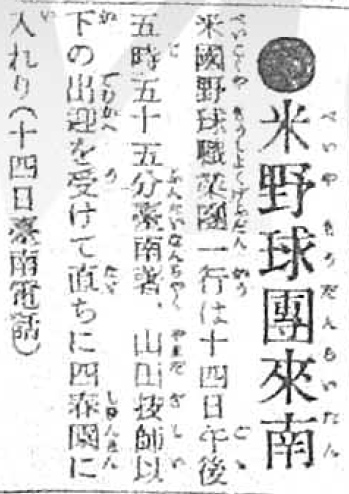 ●米野球團來南
米國野球職業團一行は十四日午後
五時五十五分臺南著、山田技師以
下の出迎を受けて直ちに四春園に
入れり（十四日臺南電話）